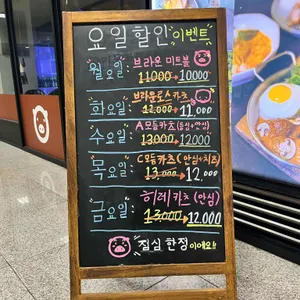 요일할인 이벤트
월요일: 브라운 미트볼
11000→10000
화요일: 브라운로스카츠
12.000→11.000
수요일: A모듬카츠(등심+안심)
13000→12000
목요일: C모듬카츠(안심+치즈)
13.000→12.000
금요일: 히레카츠(안심)
13.000→12.000
점심 한정이에요!!